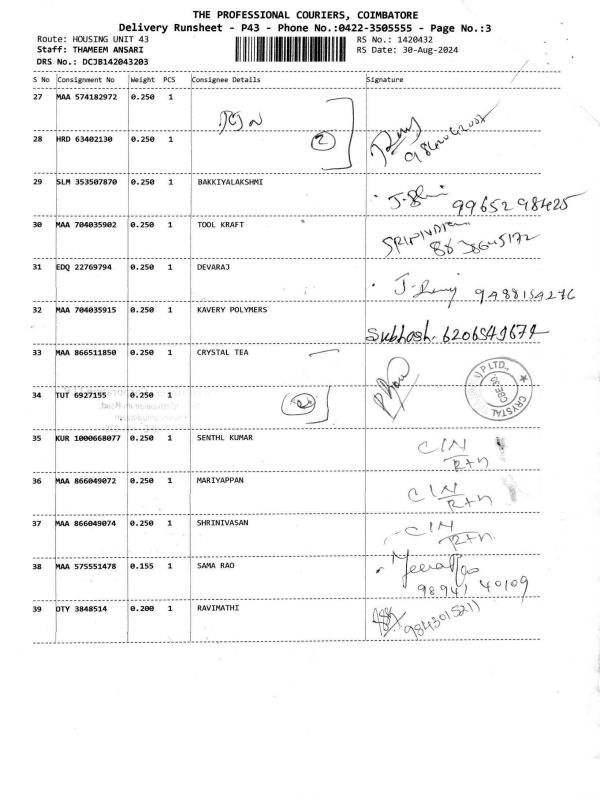 THE PROFESSIONAL COURIERS, COIMBATORE
Delivery Runsheet - P43 - Phone No.:0422-3505555 - Page No.:3
Route: HOUSING UNIT 43 RS No.: 1420432
Staff: THAMEEM ANSARI RS Date: 30-Aug-2024
DRS No.: DCJB142043203
S No Consignment No Weight PCS Consignee Details Signature
27 MAA 574182972 0.250 1
28 HRD 63402130 0.250 1 2
29 SLM 353507870 0.250 1 BAKKIYALAKSHMI 9965298425
30 MAA 704035902 0.250 1 TOOL KRAFT
31 EDQ 22769794 0.250 1 DEVARAJ 9488154276
32 MAA 704035915 0.250 1 KAVERY POLYMERS
Subhash. 6206549674
33 MAA 866511850 0.250 1 CRYSTAL TEA
34 TUT 6927155 0.250 1
CRYSTAL
35 KUR 1000668077 0.250 1 SENTHL KUMAR C/N
Rtn
36 MAA 866049072 0.250 1 MARIYAPPAN C/N
Rtn
37 MAA 866049074 0.250 1 SHRINIVASAN C/N
Rtn
38 MAA 575551478 0.155 1 SAMA RAO
98941 40109
39 OTY 3848514 0.200 1 RAVIMATHI 9843015211